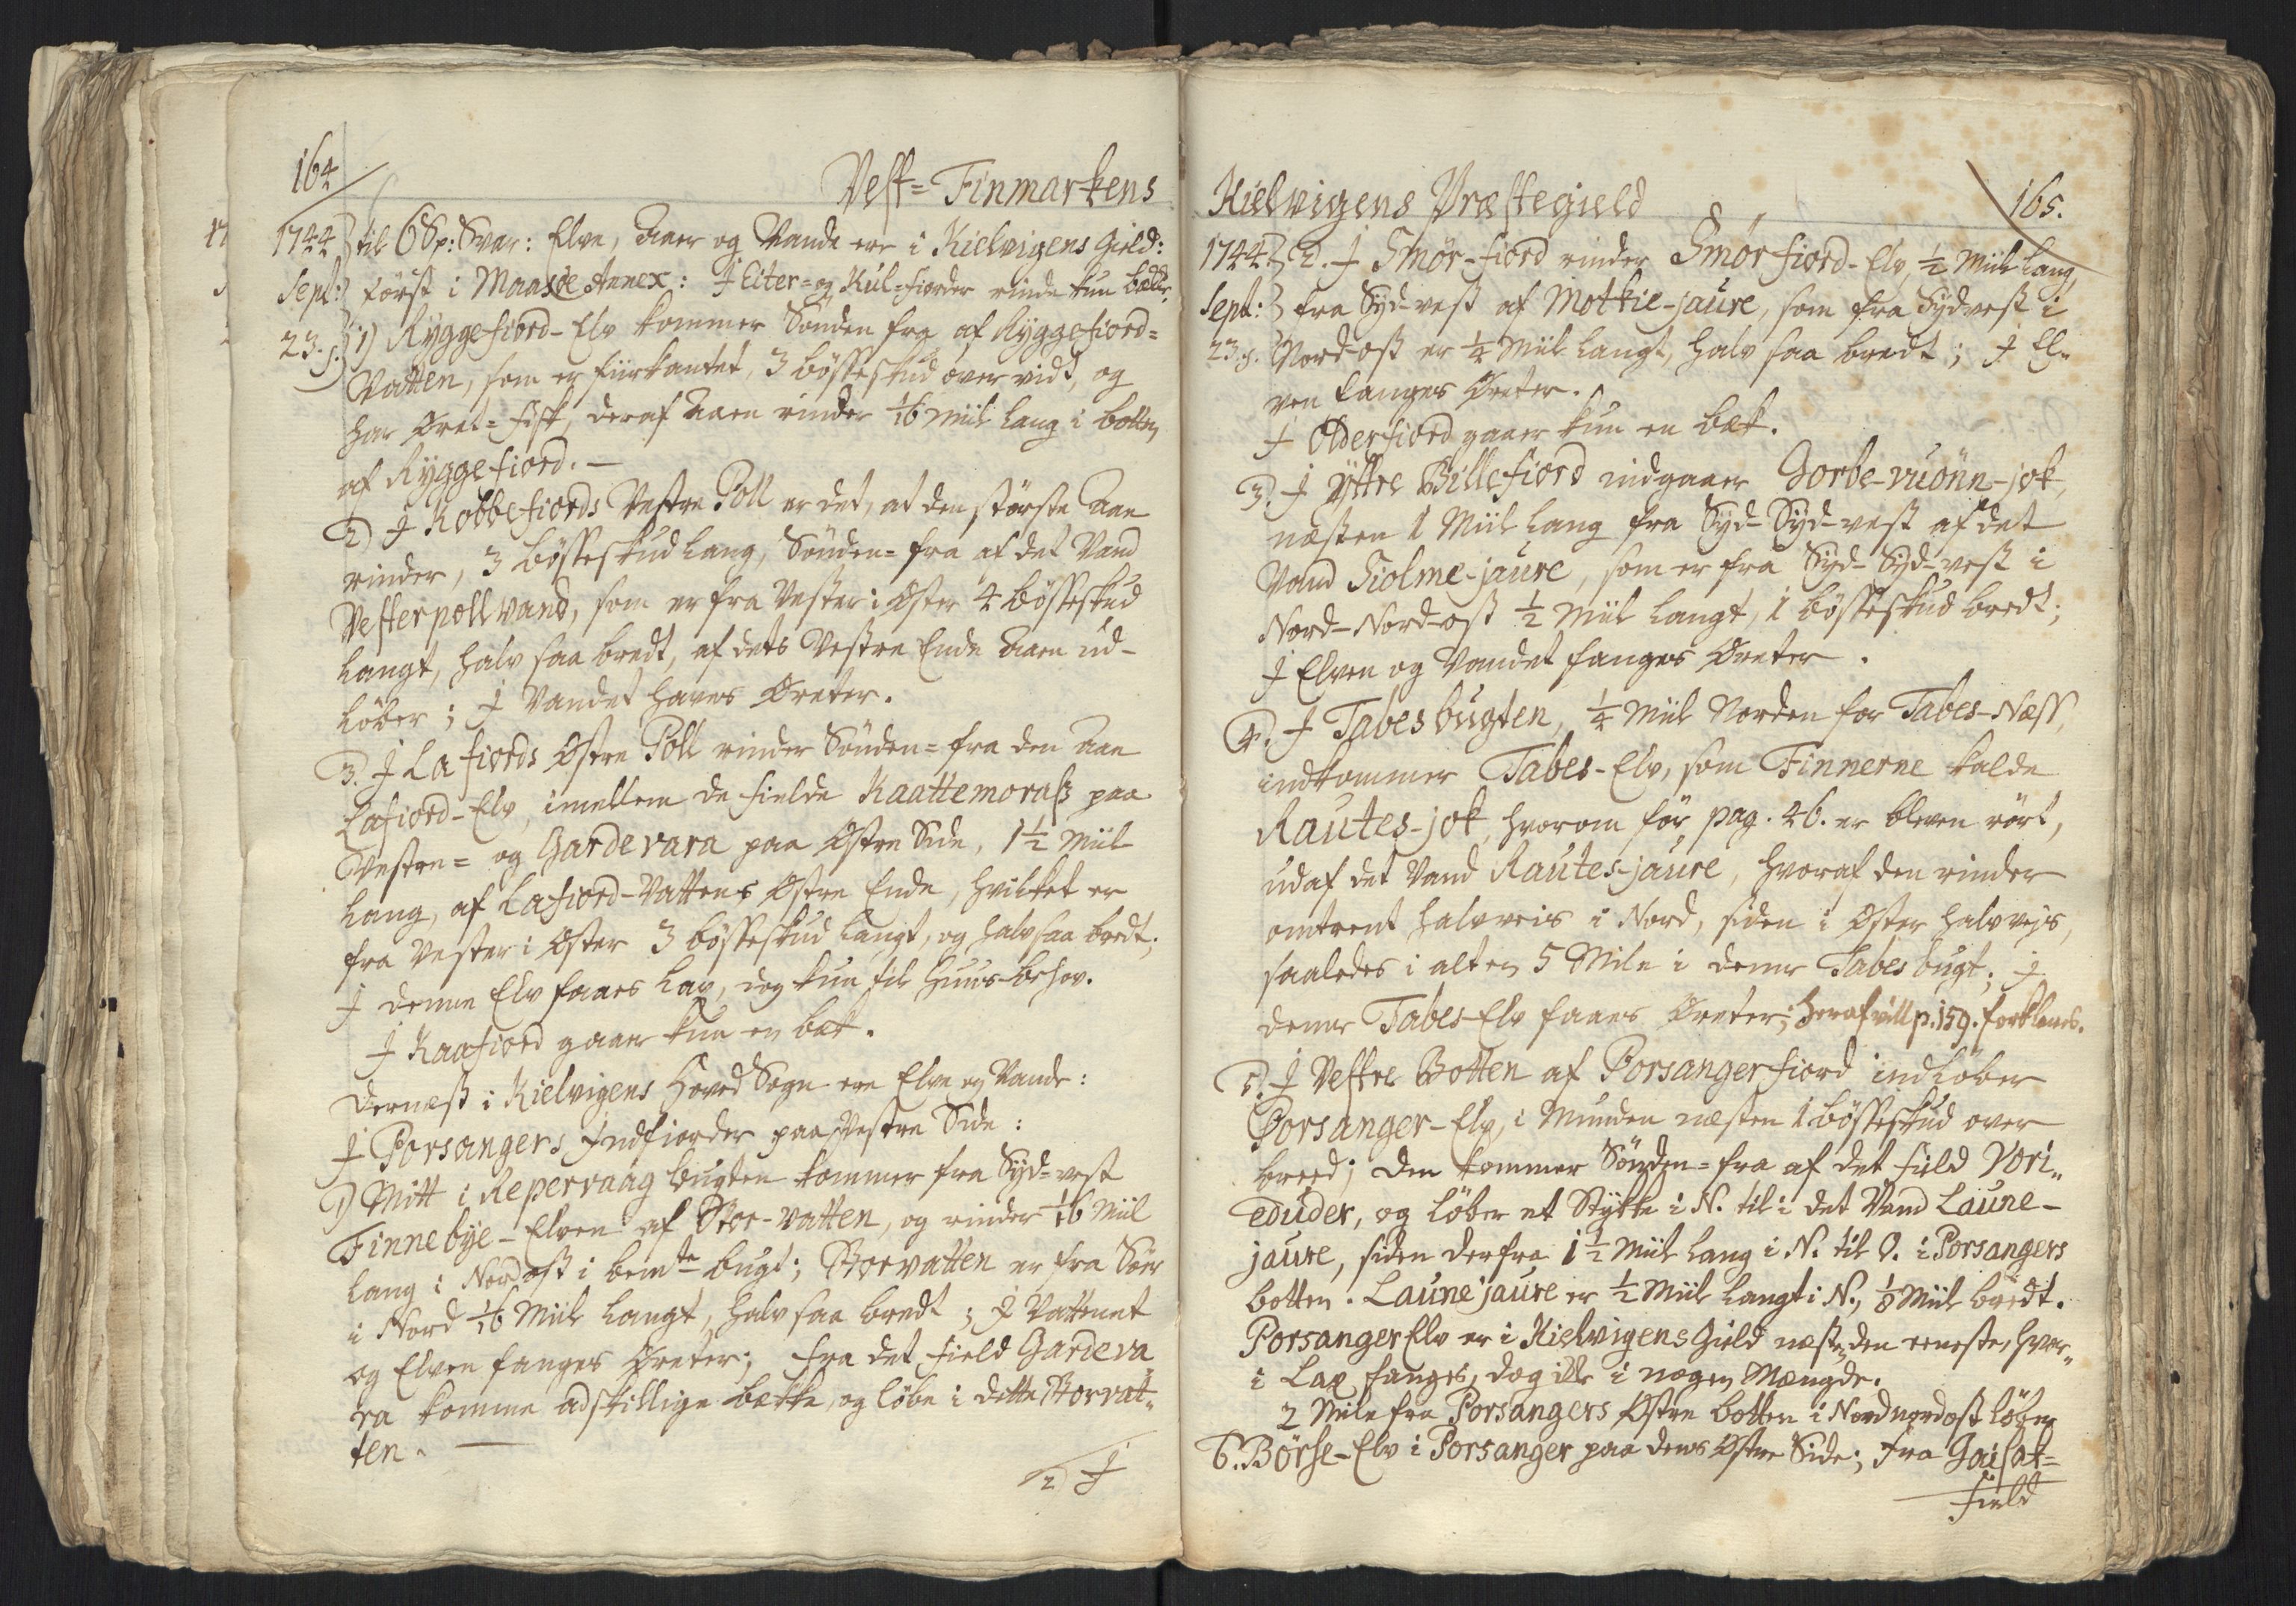 164
Vest=Finmarkens
1744 til 6 Sp: Svar: Elve, Aaer og Vande ere i Kielvigens Gield:
Sept: først i Maasøe Annex: I Eiter= og Kul-fiorder rinde kun bække,
23. s. 1) Ryggefiord-Elv kommer Sønden fra af Ryggefiord=
Vatten, som er fiirkantet, 3 bøsseskud over vidt, og
har Øret=fisk, deraf Aaen rinder 1/16 Miil lang i botten
af Ryggefiord. —
2) I Kobbefiords Vestre Poll er det, at den største Aae
rinder, 3 bøsseskud lang, Sønden=fra af det Vand
Vesterpollvand, som er fra Vester i Øster 4 bøsseskud
langt, halv saa bredt, af dets Vestre Ende Aaen ud-
løber; I Vandet haves Ørreter.
3. I Lafiords Østre Poll rinder Sønden=fra den Aae
Lafiord-Elv, imellem de fielde Kaattemorass paa
Vestre= og Gardevara paa Østre Side, 1 1/2 Miil
lang, af Lafiord-Vattens Østre Ende, hvilket er
fra Vester i Øster 3 bøsseskud langt, og halv saa bredt;
I denne Elv faaes Lax, dog kun til Huus-behov.
I Kaafiord gaaer kun en bæk.
Dernæst i Kielvigens Hoved Sogn ere Elve og Vande:
I Porsangers Indfiorder paa Vestre Side:
1) Mitt i Repervaag bugten kommer fra Syd=vest
Finnebye-Elven af Stor-vatten, og rinder 1/16 Miil
lang i Nordost i bemte bugt; Storvatten er fra Sør
i Nord 1/16 Miil langt, halv saa bredt; I Vattenet
og Elven fanges Ørreter; fra det field Gardeva
ra komme adskillige bække, og løbe i dette Storvat„
ten. —
2) I
Kielvigens Præstegield
165.
1744 2. I Smør-fiord rinder Smørfiord-Elv, 1/2 Miil lang,
Sept: fra Syd-vest af Motkie-jaure, som fra Sydvest i
23. s. Nord-ost er 1/4 Miil langt, halv saa bredt; I El„
ven fanges Ørreter.
I Olderfiord gaaer kun en bæk.
3. I Yttre Billefiord indgaaer Gorbe-vuonn-jok,
næsten 1 Miil lang fra Syd-Syd-vest af det
Vand Giolme-jaure, som er fra Syd-Syd-vest i
Nord-Nord-ost 1/2 Miil langt, 1 bøsseskud bredt;
I Elven og Vandet fanges Ørreter.
4. I Tabesbugten, 1/4 Miil Norden for Tabes-Næss,
indkommer Tabes-Elv, som Finnerne kalde
Rautes-jok, hvorom før pag. 46. er bleven rørt,
udaf det Vand Rautes-jaure, hvoraf den rinder
omtrent halvveis i Nord, siden i Øster halvvejs,
saaledes i alt en 5 Mile i denne Tabesbugt; I
denne Tabes-Elv faaes Ørreter; heraf vill p. 159. forklares.
5. I Vestre Botten af Porsangerfiord indløber
Porsanger-Elv, i Munden næsten 1 bøsseskud over
breed; den kommer Sønden=fra af det field Vori„
eduder, og løber et Stykke i N. til i det Vand Laune-
jaure, siden derfra 1 1/2 Miil lang i N. til O. i Porsangers
botten. Launejaure er 1/2 Miil langt i N., 1/8 Miil bredt.
Porsanger Elv er i Kielvigens Gield næsten den eneste, hvor„
i Lax fanges, dog ikke i nogen Mængde.
2 Mile fra Porsangers Østre botten i Nordnordost løber
6. Børse-Elv i Porsanger paa dens Østre Side; fra Gaisak=
field